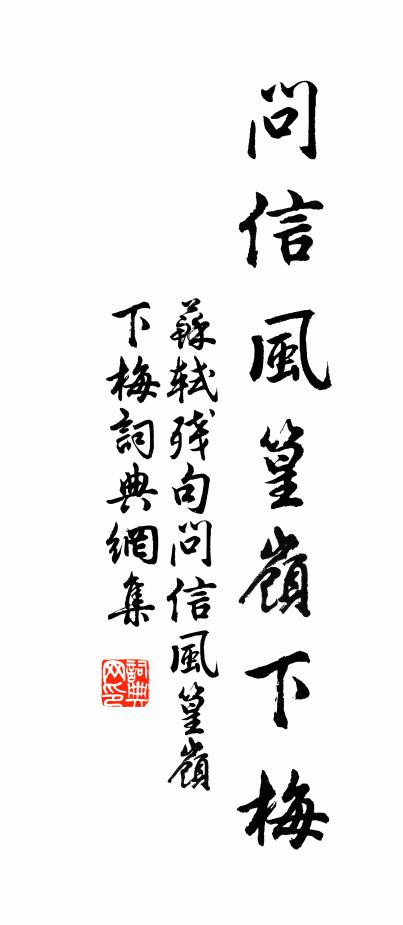 問信風篁嶺下梅
蘇軾殘句問信風篁嶺
下梅詞典網集
詞典網印